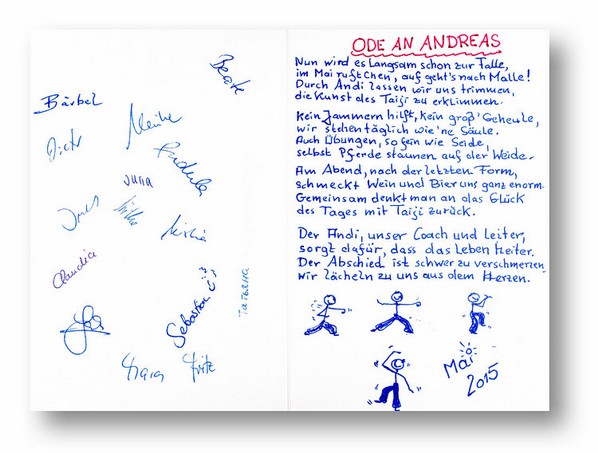 Beate
Bärbel
Meike
Dieter
Gudula
Juna
Ines
Claudia
Sebastian
TATJANA
Fritz
ODE AN ANDREAS
Nun wird es Langsam schon zur Falle,
im Mai ruft Chen, auf geht's nach Malle!
Durch Andi lassen wir uns trimmen,
die Kunst des Taiji zu erklimmen.
Kein Jammern hilft, kein groß' Geheule,
wir stehen täglich wie 'ne Säule.
Auch Übungen, so fein wie Seide,
selbst Pferde staunen auf der Weide.
Am Abend, nach der letzten Form,
schmeckt Wein und Bier uns ganz enorm.
Gemeinsam denkt man an das Glück
des Tages mit Taiji zurück.
Der Andi, unser Coach und Leiter,
sorgt dafür, dass das Leben heiter.
Der Abschied ist schwer zu verschmerzen
wir lächeln zu uns aus dem Herzen.
Mai
2015